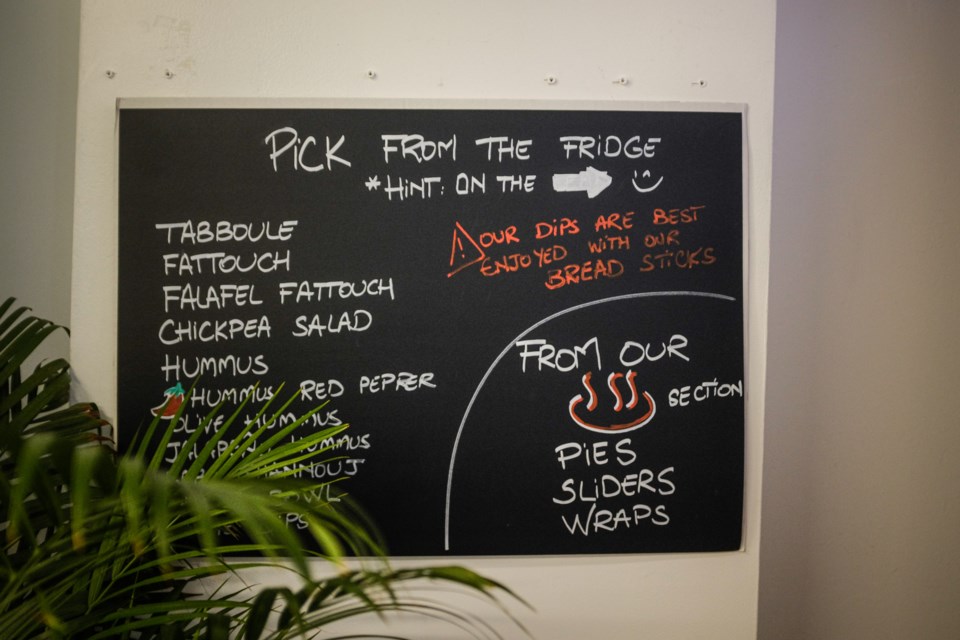 PiCK FROM THE FRiDGE
*HiNT: ON THE
TABBOULE
FATTOUCH
FALAFEL FATTOUCH
CHICKPEA SALAD
HUMMUS
HUMMUS RED PEPPER
OLIVE HUMMUS
HUMMUS
OUR DiPS ARE BEST
ENJOYED WITH OUR
BREAD STiCKS
FROM OUR
SECTION
PiES
SLiDERS
WRAPS